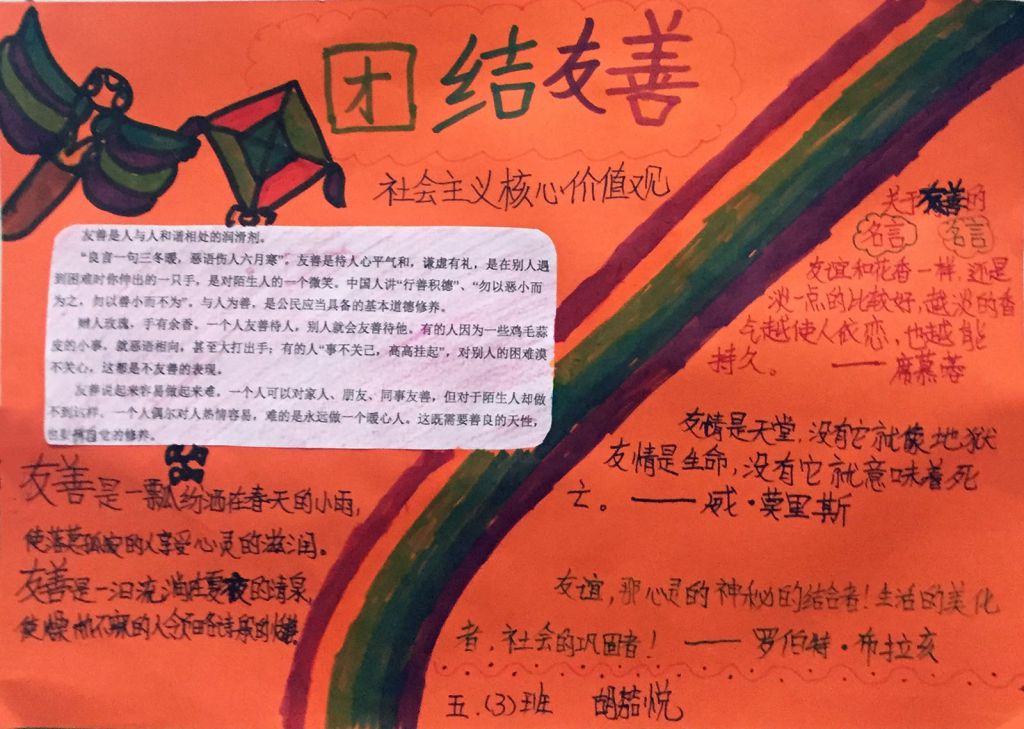 团结友善
社会主义核心价值观
友善是人与人和谐相处的润滑剂。
“良言一句三冬暖，恶语伤人六月寒”。友善是待人心平气和，谦虚有礼，是在别人遇
到困难时你伸出的一只手，是对陌生人的一个微笑。中国人讲“行善积德”、“勿以恶小而
为之，勿以善小而不为”。与人为善，是公民应当具备的基本道德修养。
赠人玫瑰，手有余香。一个人友善待人，别人就会友善待他。有的人因为一些鸡毛蒜
皮的小事，就恶语相向，甚至大打出手；有的人“事不关己，高高挂起”，对别人的困难漠
不关心，这都是不友善的表现。
友善说起来容易做起来难。一个人可以对家人、朋友、同事友善，但对于陌生人却做
不到这样。一个人偶尔对人热情容易，难的是永远做一个暖心人。这既需要善良的天性，
自觉的修养。
友善是一瓢纷洒在春天的小雨，
使落寞孤寂的人享受心灵的滋润。
友善是一汩流淌在夏夜的清泉，
使燥热不寐的人领略诗般的恬
关于友善的
名言 名言
友谊和花香一样，还是
淡一点的比较好，越淡的香
气越使人依恋，也越能
持久。——席慕蓉
友情是天堂，没有它就像地狱
友情是生命，没有它就意味着死
亡。——威·莫里斯
友谊，那心灵的神秘的结合者！生活的美化
者，社会的巩固者！——罗伯特·布拉亥
五.(3)班 胡茹悦